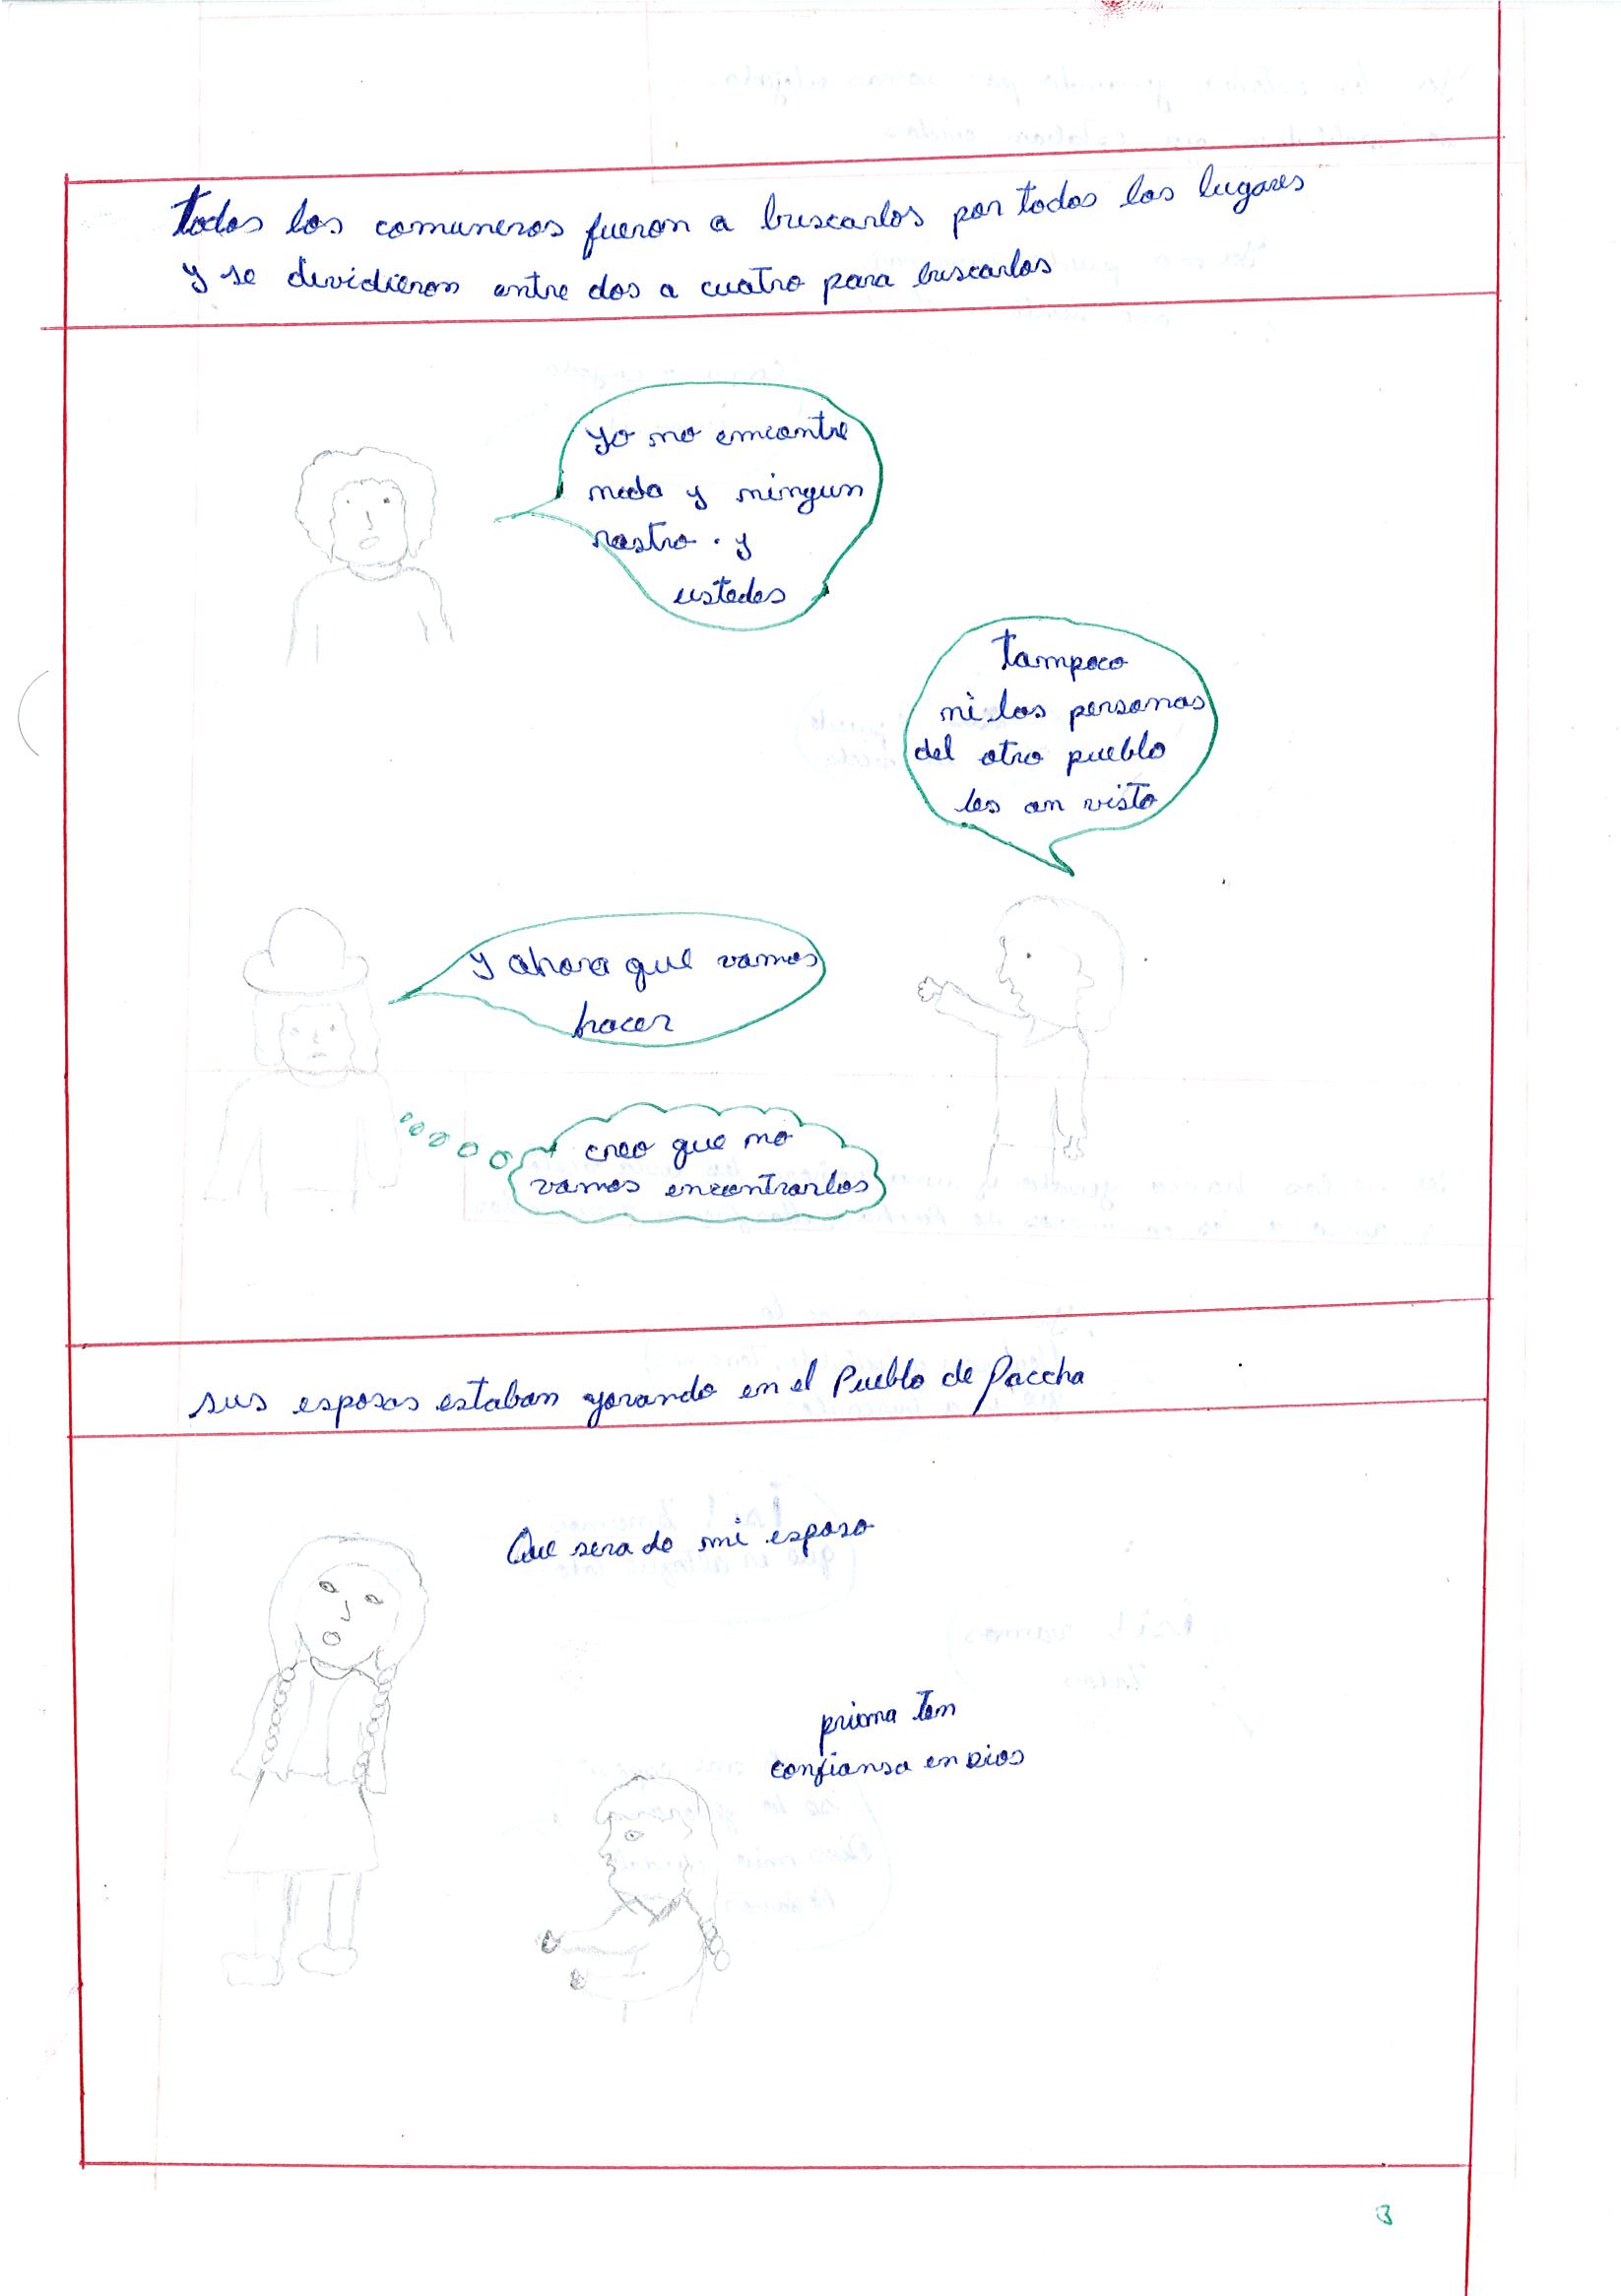 todos los comuneros fueron a buscarlos por todos los lugares
y se dividieron entre dos a cuatro para buscarlos
yo no encontre
nada y ningun
rastro. y
ustedes
tampoco
ni las personas
del otro pueblo
les an visto
y ahora que vamos
hacer
creo que no
vamos encontrarlos
sus esposas estaban yorando en el Pueblo de Paccha
Que sera de mi esposo
prima ten
confiansa en Dios
3